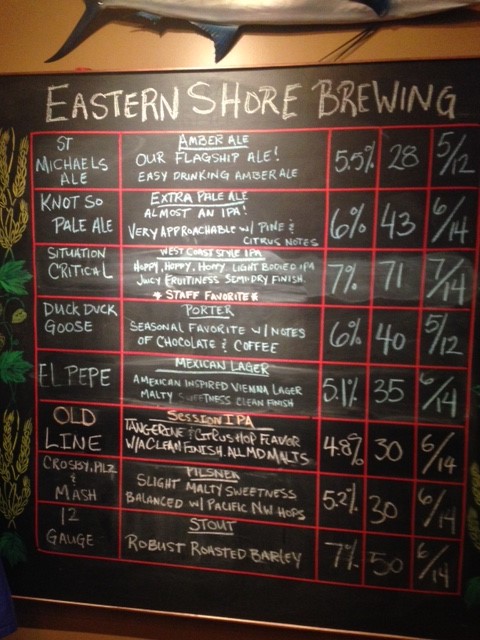 EASTERN SHORE BREWING
ST MICHAELS ALE
AMBER ALE
OUR FLAGSHIP ALE!
EASY DRINKING AMBER ALE
5.5% 28 5/12
KNOT SO PALE ALE
EXTRA PALE ALE
ALMOST AN IPA!
VERY APPROACHABLE W/ PINE & CITRUS NOTES
6% 43 6/14
SITUATION CRITICAL
WEST COAST STYLE IPA
HOPPY, HOPPY, HOPPY LIGHT BODIED IPA
JUICY FRUITINESS SEMI DRY FINISH.
* STAFF FAVORITE *
7% 71 7/14
DUCK DUCK GOOSE
PORTER
SEASONAL FAVORITE W/ NOTES
OF CHOCOLATE & COFFEE
6% 40 5/12
EL PEPE
MEXICAN LAGER
AMERICAN INSPIRED VIENNA LAGER
MALTY SWEETNESS CLEAN FINISH
5.1% 35 6/14
OLD LINE
SESSION IPA
TANGERINE & CITRUS HOP FLAVOR
W/A CLEAN FINISH. ALL MD MALTS
4.8% 30 6/14
CROSBY, PILZ & MASH
PILSNER
SLIGHT MALTY SWEETNESS
BALANCED W/ PACIFIC NW HOPS
5.2% 30 6/14
12 GAUGE
STOUT
ROBUST ROASTED BARLEY
7% 50 6/14